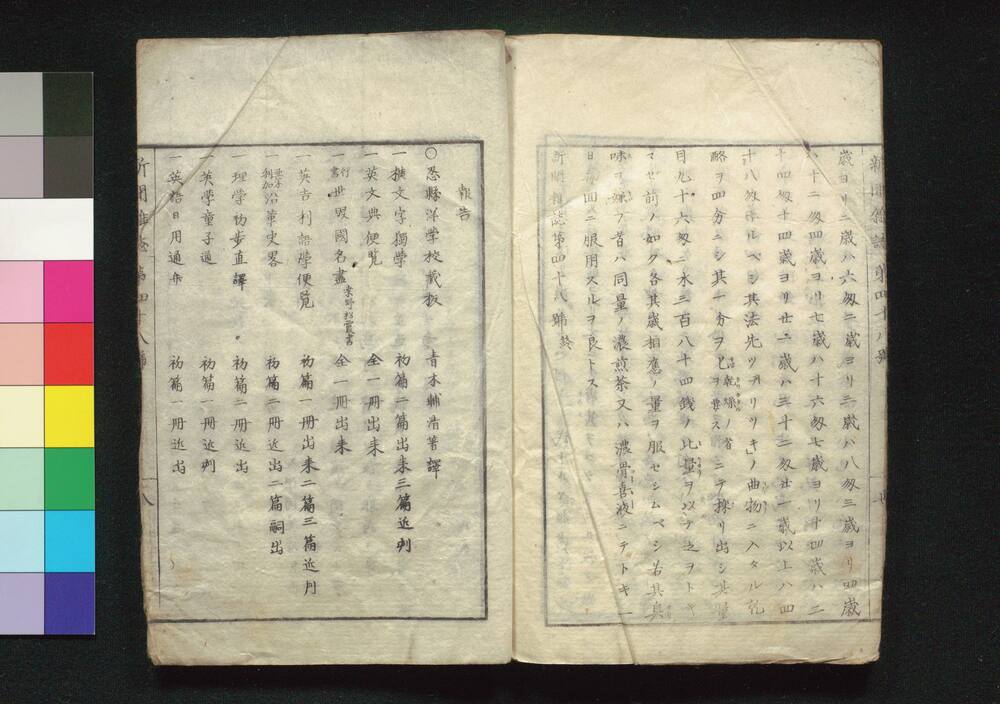 歳ヨリ二歳ハ六匁二歳ヨリ三歳ハ八匁三歳ヨリ四歳
ハ十二匁四歳ヨリ七歳ハ十六匁七歳ヨリ十四歳ハ二
十四匁十四歳ヨリ廿一歳ハ三十二匁廿一歳以上ハ四
十八匁ナルベシ其法先ツ「ブリツキ」ノ曲物ニ入タル乾
酪ヲ四分ニシ其一分ヲ ニテ採リ出シ其量
目九十六匁ニ水三百八十四錢ノ比量ヲ以テ之ヲトキ
マゼ前ノ如ク各其歳相應ノ量ヲ服セシムベシ若其臭
味ヲ嫌フ者ハ同量ノ濃煎茶又ハ濃骨喜液ニテトキ一
日 回ニ服用スルヲ良トス
新聞雜誌第四十八號終
新聞雜誌 第四十八號
報告
○忍縣洋学校藏板 青木輔清著譯
一横文字獨学 初篇二篇出来三篇近刻
一英文典便覧 全一冊出来
一世界國名盡 全一冊出来
一英吉利語学便覧 初篇一冊出来二篇三篇近刋
一 沿革史畧 初篇二冊近出二篇嗣出
一理学初歩直譯 初篇二冊近出
一英学童子通 初篇一冊近刻
一英語日用通弁 初篇一冊近出
新聞雜誌 第四十八號 八